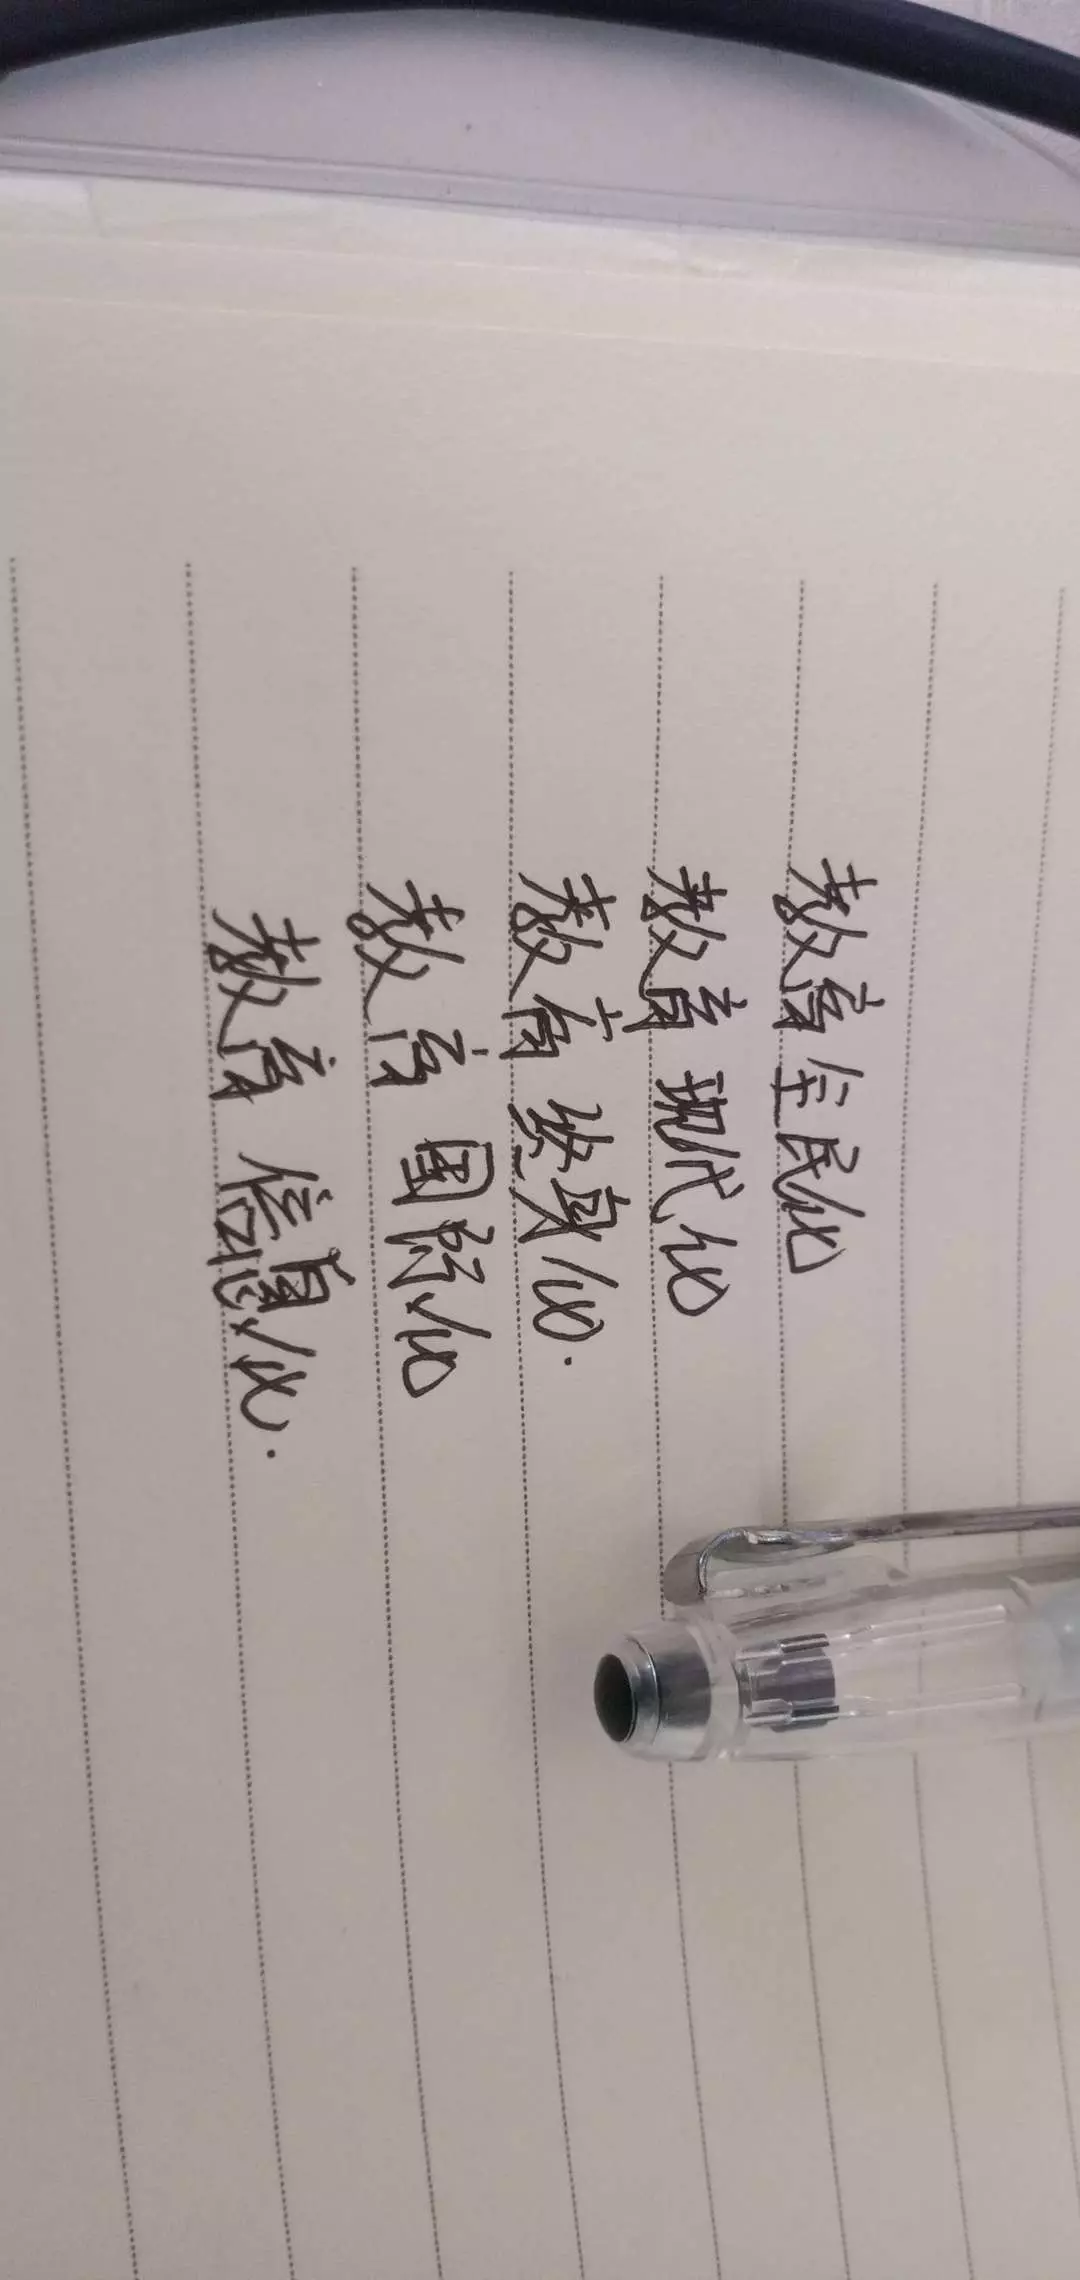 教育全民化
教育现代化
教育终身化.
教育国际化
教育信息化.